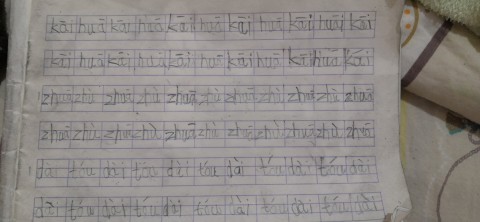 kāi huā kāi huā kāi huā kāi huā kāi huā kāi
kāi huā kāi huā kāi huā kāi huā kāi huā kāi
zhuā zhù zhuā zhù zhuā zhù zhuā zhù zhuā zhù zhuā
zhuā zhù zhuā zhù zhuā zhù zhuā zhù zhuā zhù zhuā
dài tóu dài tóu dài tóu dài tóu dài tóu dài
dài tóu dài tóu dài tóu dài tóu dài tóu dài